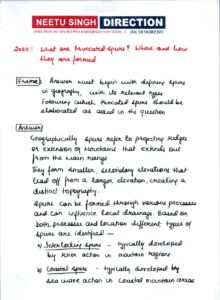 NEETU SINGH DIRECTION
2024: What are truncated spurs? Where and how
they are formed
Frame: Answer must begin with defining spurs
in geography, with its relevant types
Following which truncated spurs should be
elaborated as asked in the question
Answer
Geographically spurs refer to projecting ridges
or extension of mountains that extends out
from the main range
They form smaller, secondary elevations that
lead off from a larger elevation, creating a
distinct topography.
Spurs can be formed through various processes
and can influence local drainage. Based on
both processes and location different types of
spurs are identified —
a) Interlocking spurs - typically developed
by river action in mountain regions
b) Coastal spurs - typically developed by
sea wave action in coastal mountain areas